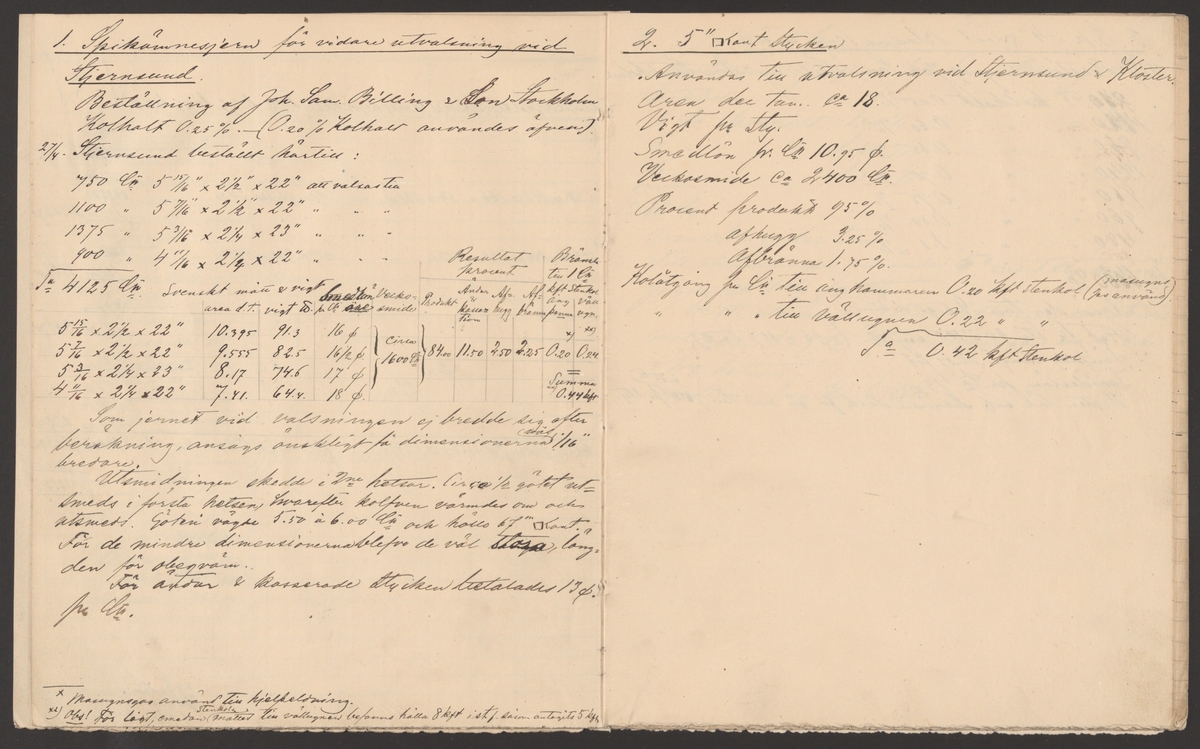 1. Spikämnesjern för vidare utvalsning vid
Stjernsund.
Beställning af Joh. Sam. Billing & Son Stockholm
Kolhalt 0.25 %. — (0.20 % Kolhalt användes äfven).
27/4. Stjernsund beställt härtill:
750 Ctr 5 15/16" x 2 1/2" x 22" att valsas till
1100 " 5 7/16" x 2 1/2" x 22" " " "
1375 " 5 3/16" x 2 1/4 x 23" " " "
900 " 4 11/16 x 2 1/4 x 22" " " "
Sa 4125 Ctr. Svenskt mått & vigt
Resultat procent
Bränsle till 1 Ctr
area d.t. vigt ℔ Smedlön pr Ctr Veckosmide Produkt Ändar & kassation Afhugg Afbränna kft Stenkol ång hamma. x) Vällugn. xx)
5 15/16 x 2 1/2 x 22" 10.395 91.3 16 ¢
5 7/16 x 2 1/2 x 22" 9.555 82.5 16 1/2 ¢ Circa 1600 Ctr 84.00 11.50 2.50 2.25 0.20 0.24
5 3/16 x 2 1/4 x 23" 8.17 74.6 17 ¢
4 11/16 x 2 1/4 x 22" 7.41. 64.4. 18 ¢.
Summa 0.44 kft
Som jernet vid valsningen ej bredde sig efter
beräkning, ansågs önskligt få dimensionerna 1/16"
bredare.
Utsmidningen skedde i 2ne hetsor. Circa 1/2 götet ut=
smeds i första hetsen, hvarefter kolfven värmdes om och
utsmeds. Göten vägde 5.50 à 6.00 Ctr och hölls 67''' □ kant.
För de mindre dimensionerna blefvo de väl stora, läng=
den för obeqväm.
För ändar & kasserade stycken betalades 13 ¢.
pr Ctr.
x Masugnsgas använd till hjelpeldning.
xx) Obs! För lågt, emedan stenkolsmåttet till vällugnen befanns hålla 8 kft i st. f. såsom antagits 5 kft
2. 5" □ kant stycken
Användas till utvalsning vid Stjernsund & Kloster.
Area dec. tum. ca 18.
Vigt pr sty.
Smedlön pr. Ctr 10.95 ¢.
Veckosmide ca 2400 Ctr.
Procent produkt 95 %
afhugg 3.25 %
afbränna 1.75 %.
Kolåtgång pr Ctr till ånghammaren 0.20 kft Stenkol (masugnsgas använd)
" " " till vällugnen 0.22 " "
Sa 0.42 kft Stenkol